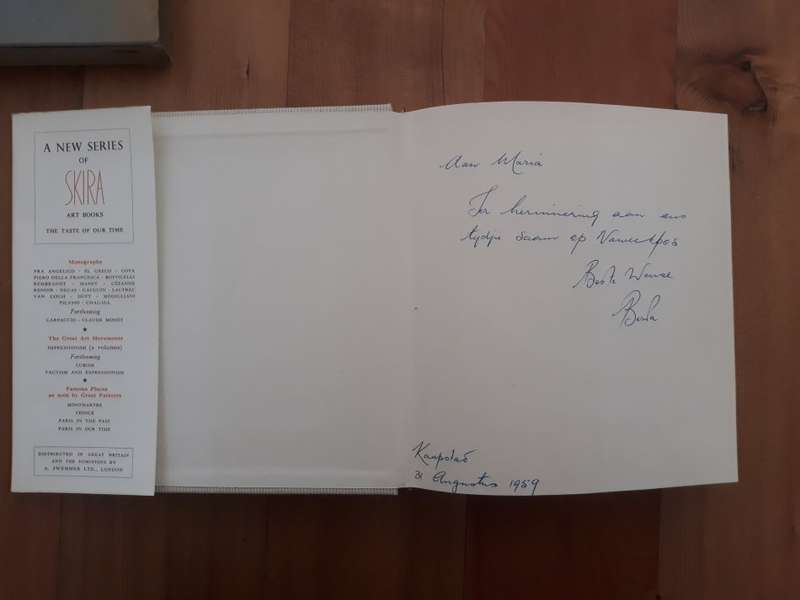 A NEW SERIES
OF
SKIRA
ART BOOKS
THE TASTE OF OUR TIME
Monographs
FRA ANGELICO - EL GRECO - GOYA
PIERO DELLA FRANCESCA - BOTTICELLI
REMBRANDT - MANET - CÉZANNE
RENOIR - DEGAS - GAUGUIN - LAUTREC
VAN GOGH - DUFY - MODIGLIANI
PICASSO - CHAGALL
Forthcoming
CARPACCIO - CLAUDE MONET
★
The Great Art Movements
IMPRESSIONISM (2 VOLUMES)
Forthcoming
CUBISM
FAUVISM AND EXPRESSIONISM
★
Famous Places
as seen by Great Painters
MONTMARTRE
VENICE
PARIS IN THE PAST
PARIS IN OUR TIME
DISTRIBUTED IN GREAT BRITAIN
AND THE DOMINIONS BY
A. ZWEMMER LTD., LONDON
Aan Maria
Ter herinnering aan ons
tydjie saam op
Beste Wense
Kaapstad
31 Augustus 1959